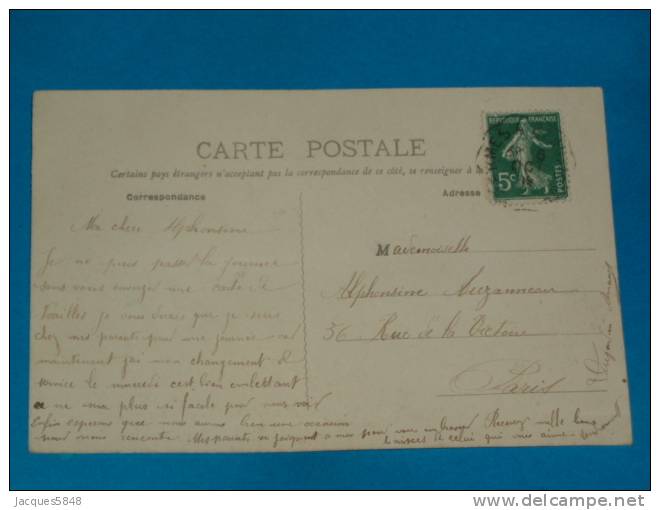 CARTE POSTALE
Certains pays étrangers n'acceptant pas la correspondance de ce côté, se renseigner à la
Correspondance
Adresse
REPUBLIQUE FRANÇAISE
5c
POSTES
Ma chere Alphonsine
Je ne puis passer la journee
sans vous envoyer une carte de
je vous dirais que je suis
chez mes parents pour une journee car
maintenant j'ai mon changement de
service le mercredi c'est bien embettant
ce ne sera plus si facile pour nous voir
Enfin esperons que nous aurons bien une occasion
pour nous rencontre Mes parents se joignent a moi pour vous embrasser Recevez mille bons
baisers de celui qui vous aime
Mademoiselle
Alphonsine Auzanneau
56 Rue de la Victoire
Paris
Jacques5848
© delcampe.net